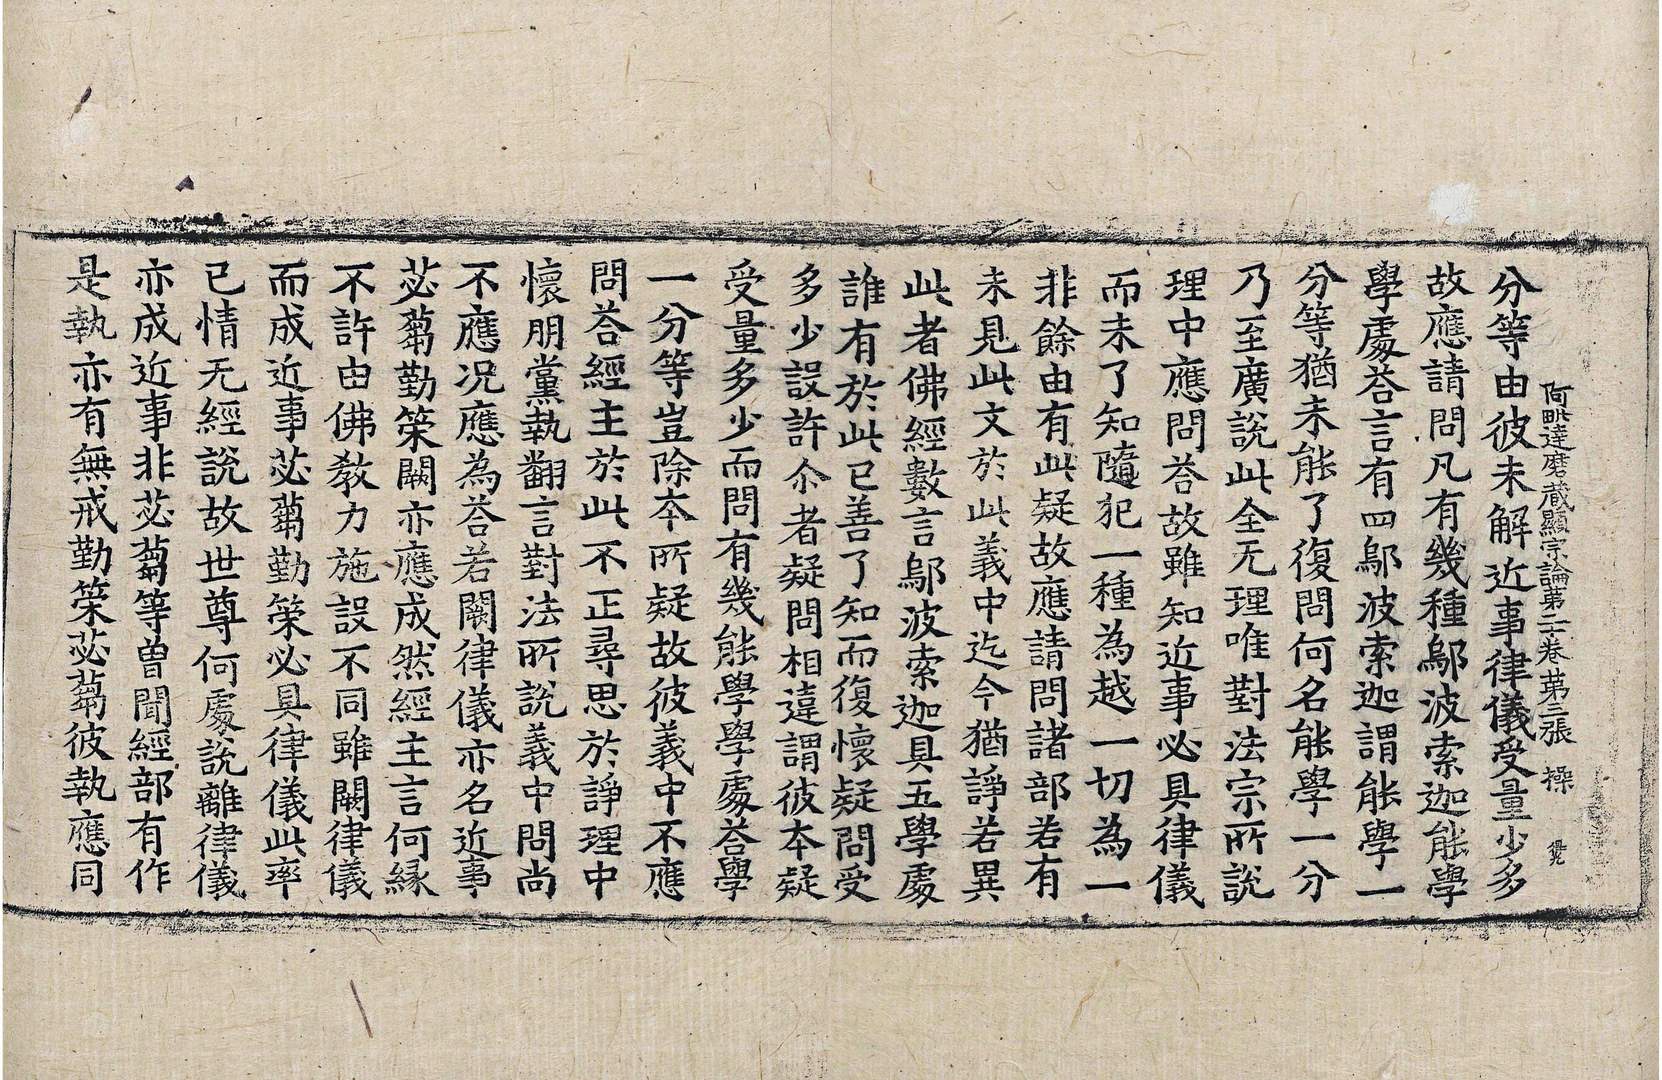 阿毗達磨藏顯宗論第二十卷 第三張 操
分等由彼未解近事律儀受量少多
故應請問凡有幾種鄔波索迦能學
學處荅言有四鄔波索迦謂能學一
分等猶未能了復問何名能學一分
乃至廣說此全无理唯對法宗所說
理中應問荅故雖知近事必具律儀
而未了知隨犯一種為越一切為一
非餘由有此疑故應請問諸部若有
未見此文於此義中迄今猶諍若異
此者佛經數言鄔波索迦具五學處
誰有於此已善了知而復懷疑問受
多少設許尒者疑問相違謂彼本疑
受量多少而問有幾能學學處荅學
一分等豈除本所疑故彼義中不應
問荅經主於此不正尋思於諍理中
懷朋黨執翻言對法所說義中問尚
不應况應為荅若闕律儀亦名近事
苾蒭勤策闕亦應成然經主言何緣
不許由佛教力施設不同雖闕律儀
而成近事苾蒭勤策必具律儀此率
已情无經說故世尊何處說離律儀
亦成近事非苾蒭等曾聞經部有作
是執亦有無戒勤策苾蒭彼執應同